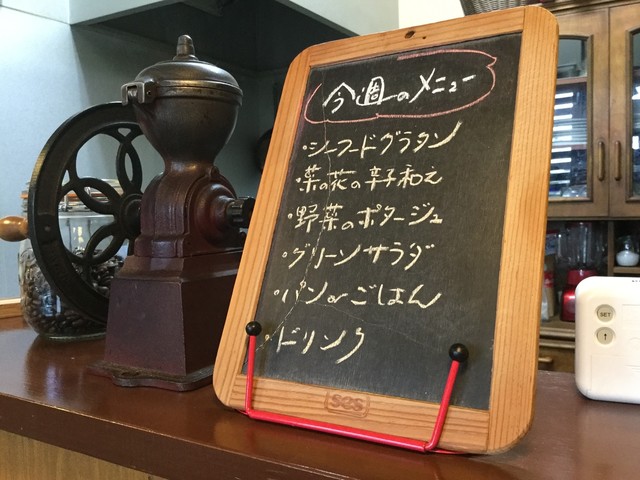 今週のメニュー
・シーフードグラタン
・菜の花の辛子和え
・野菜のポタージュ
・グリーンサラダ
・パン or ごはん
・ドリンク
SET
↑